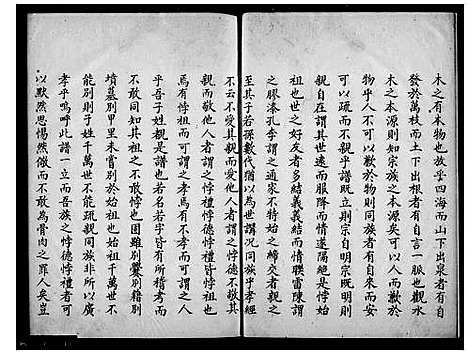 木之有本物也故乎四海而山下出泉者有自
發於萬枝而土下出根者有自言一脈也觀水
木之本源則知宗族之本源矣可以人而歉於
物乎人不可以歉於物則同族者有自來而安
可以疏而不親乎譜既立則宗自明宗既明則
親自在謂其世遠而服降而情遂隔絕是悖始
祖也世之好友者多結義義結而情聯雷陳謂
之膠漆孔李謂之通家不特始之締交者親之
至其子若孫數代猶以為世講况同族乎孝經
不云不愛其親而愛他人者謂之悖德不敬其
親而敬他人者謂之悖禮悖德悖禮皆悖祖也
焉有悖祖而可謂之孝焉有不孝而可謂之人
乎吾子姓親是譜也若名若字皆有所稽考而
不敢同知其祖之不可悖也困雖別爨籍別
墳墓別甲里未嘗別於始祖也始祖千萬世不
能別則子姓千萬世不能疏親同族非所以廣
孝乎嗚呼此譜一立而吾族之悖德悖禮者可
以默然思惕然儆而不敢為骨肉之罪人矣豈